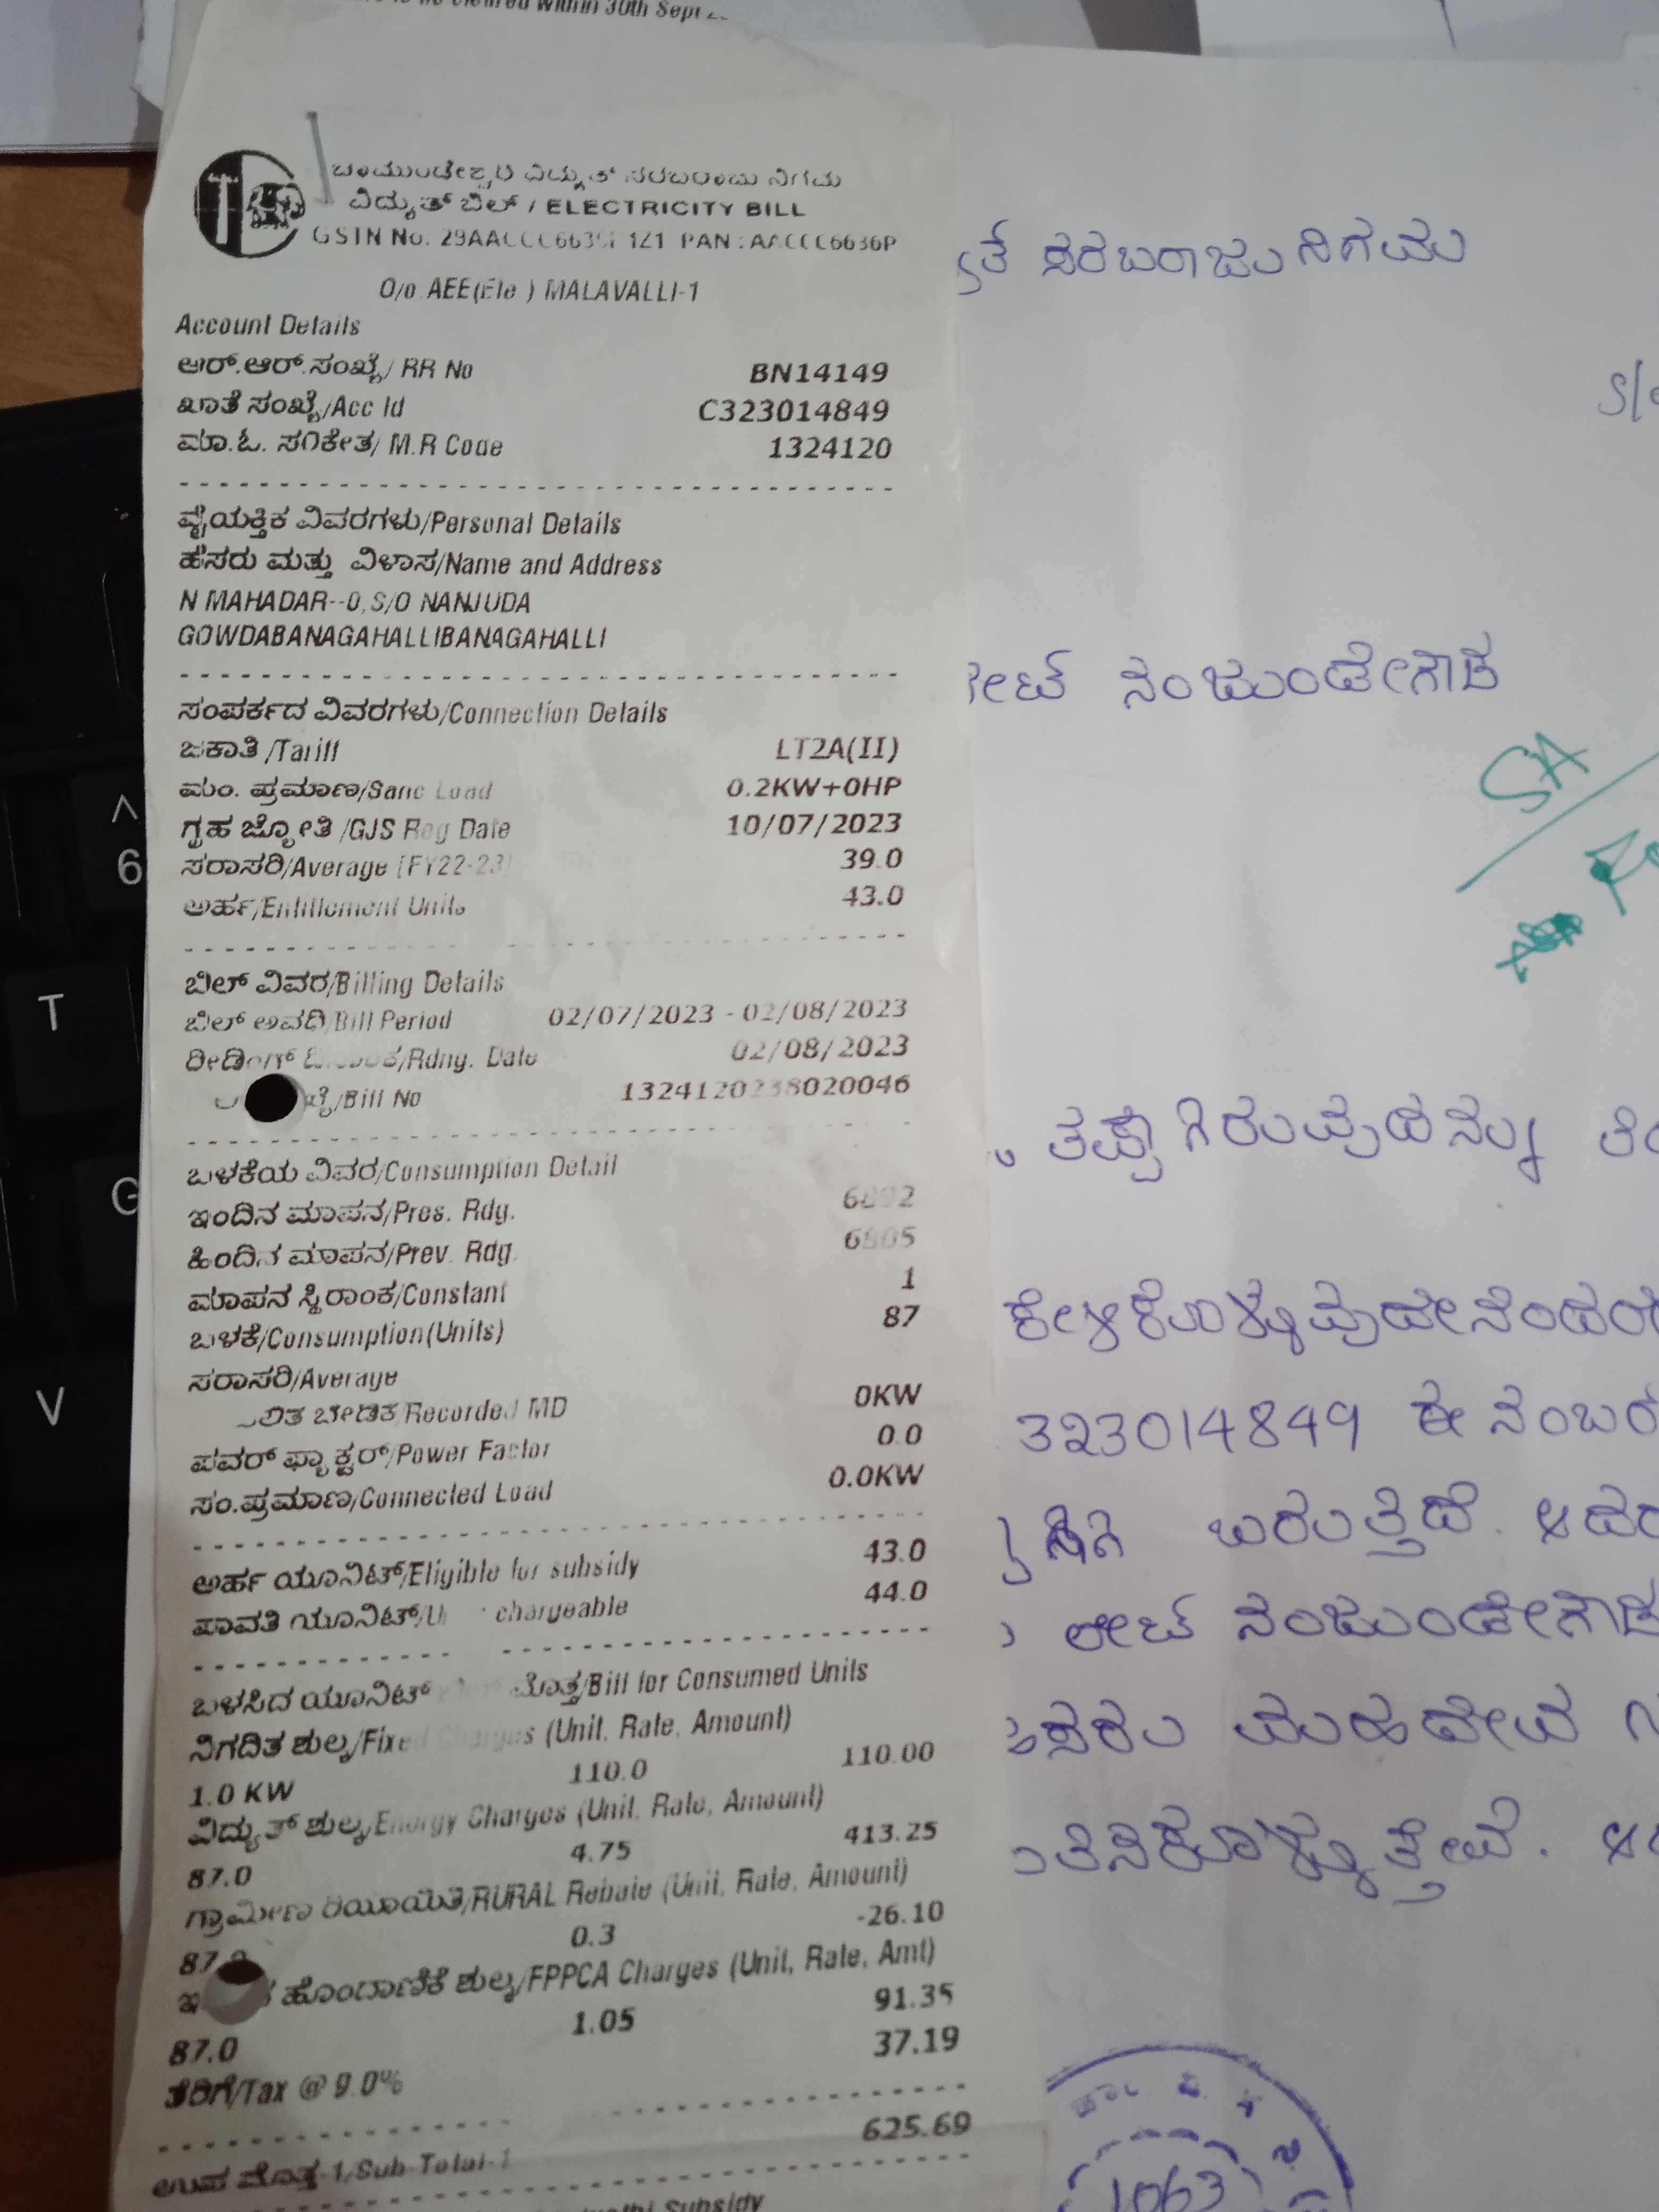 to be cleared within 30th Sept
ಚಾಮುಂಡೇಶ್ವರಿ ವಿದ್ಯುತ್ ಸರಬರಾಜು ನಿಗಮ
ವಿದ್ಯುತ್ ಬಿಲ್ / ELECTRICITY BILL
GSTN No: PAN : AACCC6636P
O/o AEE(Ele ) MALAVALLI-1
Account Details
ಆರ್.ಆರ್.ಸಂಖ್ಯೆ/ RR No BN14149
ಖಾತೆ ಸಂಖ್ಯೆ/Acc Id C323014849
ಮಾ.ಓ. ಸಂಕೇತ/ M.R Code 1324120
ವೈಯಕ್ತಿಕ ವಿವರಗಳು/Personal Details
ಹೆಸರು ಮತ್ತು ವಿಳಾಸ/Name and Address
N MAHADAR--0,S/O NANJUDA
GOWDABANAGAHALLIBANAGAHALLI
ಸಂಪರ್ಕದ ವಿವರಗಳು/Connection Details
ಜಕಾತಿ /Tariff LT2A(II)
ಮಂ. ಪ್ರಮಾಣ/Sanc Load 0.2KW+0HP
ಗೃಹ ಜ್ಯೋತಿ /GJS Reg Date 10/07/2023
ಸರಾಸರಿ/Average [FY22-23] 39.0
ಅರ್ಹ/Entitlement Units 43.0
ಬಿಲ್ ವಿವರ/Billing Details
ಬಿಲ್ ಅವಧಿ/Bill Period 02/07/2023 - 02/08/2023
ರೀಡಿಂಗ್ ದಿನಾಂಕ/Rdng. Date 02/08/2023
/Bill No 1324120238020046
ಬಳಕೆಯ ವಿವರ/Consumption Detail
ಇಂದಿನ ಮಾಪನ/Pres. Rdg. 6892
ಹಿಂದಿನ ಮಾಪನ/Prev. Rdg. 6805
ಮಾಪನ ಸ್ಥಿರಾಂಕ/Constant 1
ಬಳಕೆ/Consumption(Units) 87
ಸರಾಸರಿ/Average
ಬೇಡಿಕೆ/Recorded MD 0KW
ಪವರ್ ಫ್ಯಾಕ್ಟರ್/Power Factor 0.0
ಸಂ.ಪ್ರಮಾಣ/Connected Load 0.0KW
ಅರ್ಹ ಯೂನಿಟ್/Eligible for subsidy 43.0
ಪಾವತಿ ಯೂನಿಟ್/ chargeable 44.0
ಬಳಸಿದ ಯೂನಿಟ್ ಮೊತ್ತ/Bill for Consumed Units
ನಿಗದಿತ ಶುಲ್ಕ/Fixed Charges (Unit, Rate, Amount)
1.0 KW 110.0 110.00
ವಿದ್ಯುತ್ ಶುಲ್ಕ/Energy Charges (Unit, Rate, Amount)
87.0 4.75 413.25
ಗ್ರಾಮೀಣ ರಿಯಾಯಿತಿ/RURAL Rebate (Unit, Rate, Amount)
87.0 0.3 -26.10
ಹೊಂದಾಣಿಕೆ ಶುಲ್ಕ/FPPCA Charges (Unit, Rate, Amt)
87.0 1.05 91.35
ತೆರಿಗೆ/Tax @ 9.0% 37.19
ಉಪ ಮೊತ್ತ-1/Sub Total-1 625.69
Subsidy
ಸರಬರಾಜು ನಿಗಮ
ನಂಜುಂಡೇಗೌಡ
SA
ತಪ್ಪಾಗಿರುವುದನ್ನು
ಕೇಳಿಕೊಳ್ಳುವುದೇನೆಂದರೆ
323014849 ಈ ನಂಬರ
ಬರುತ್ತಿದೆ. ಆದರ
ಲೇಟ್ ನಂಜುಂಡೇಗೌಡ
ಮಹದೇವ
1063